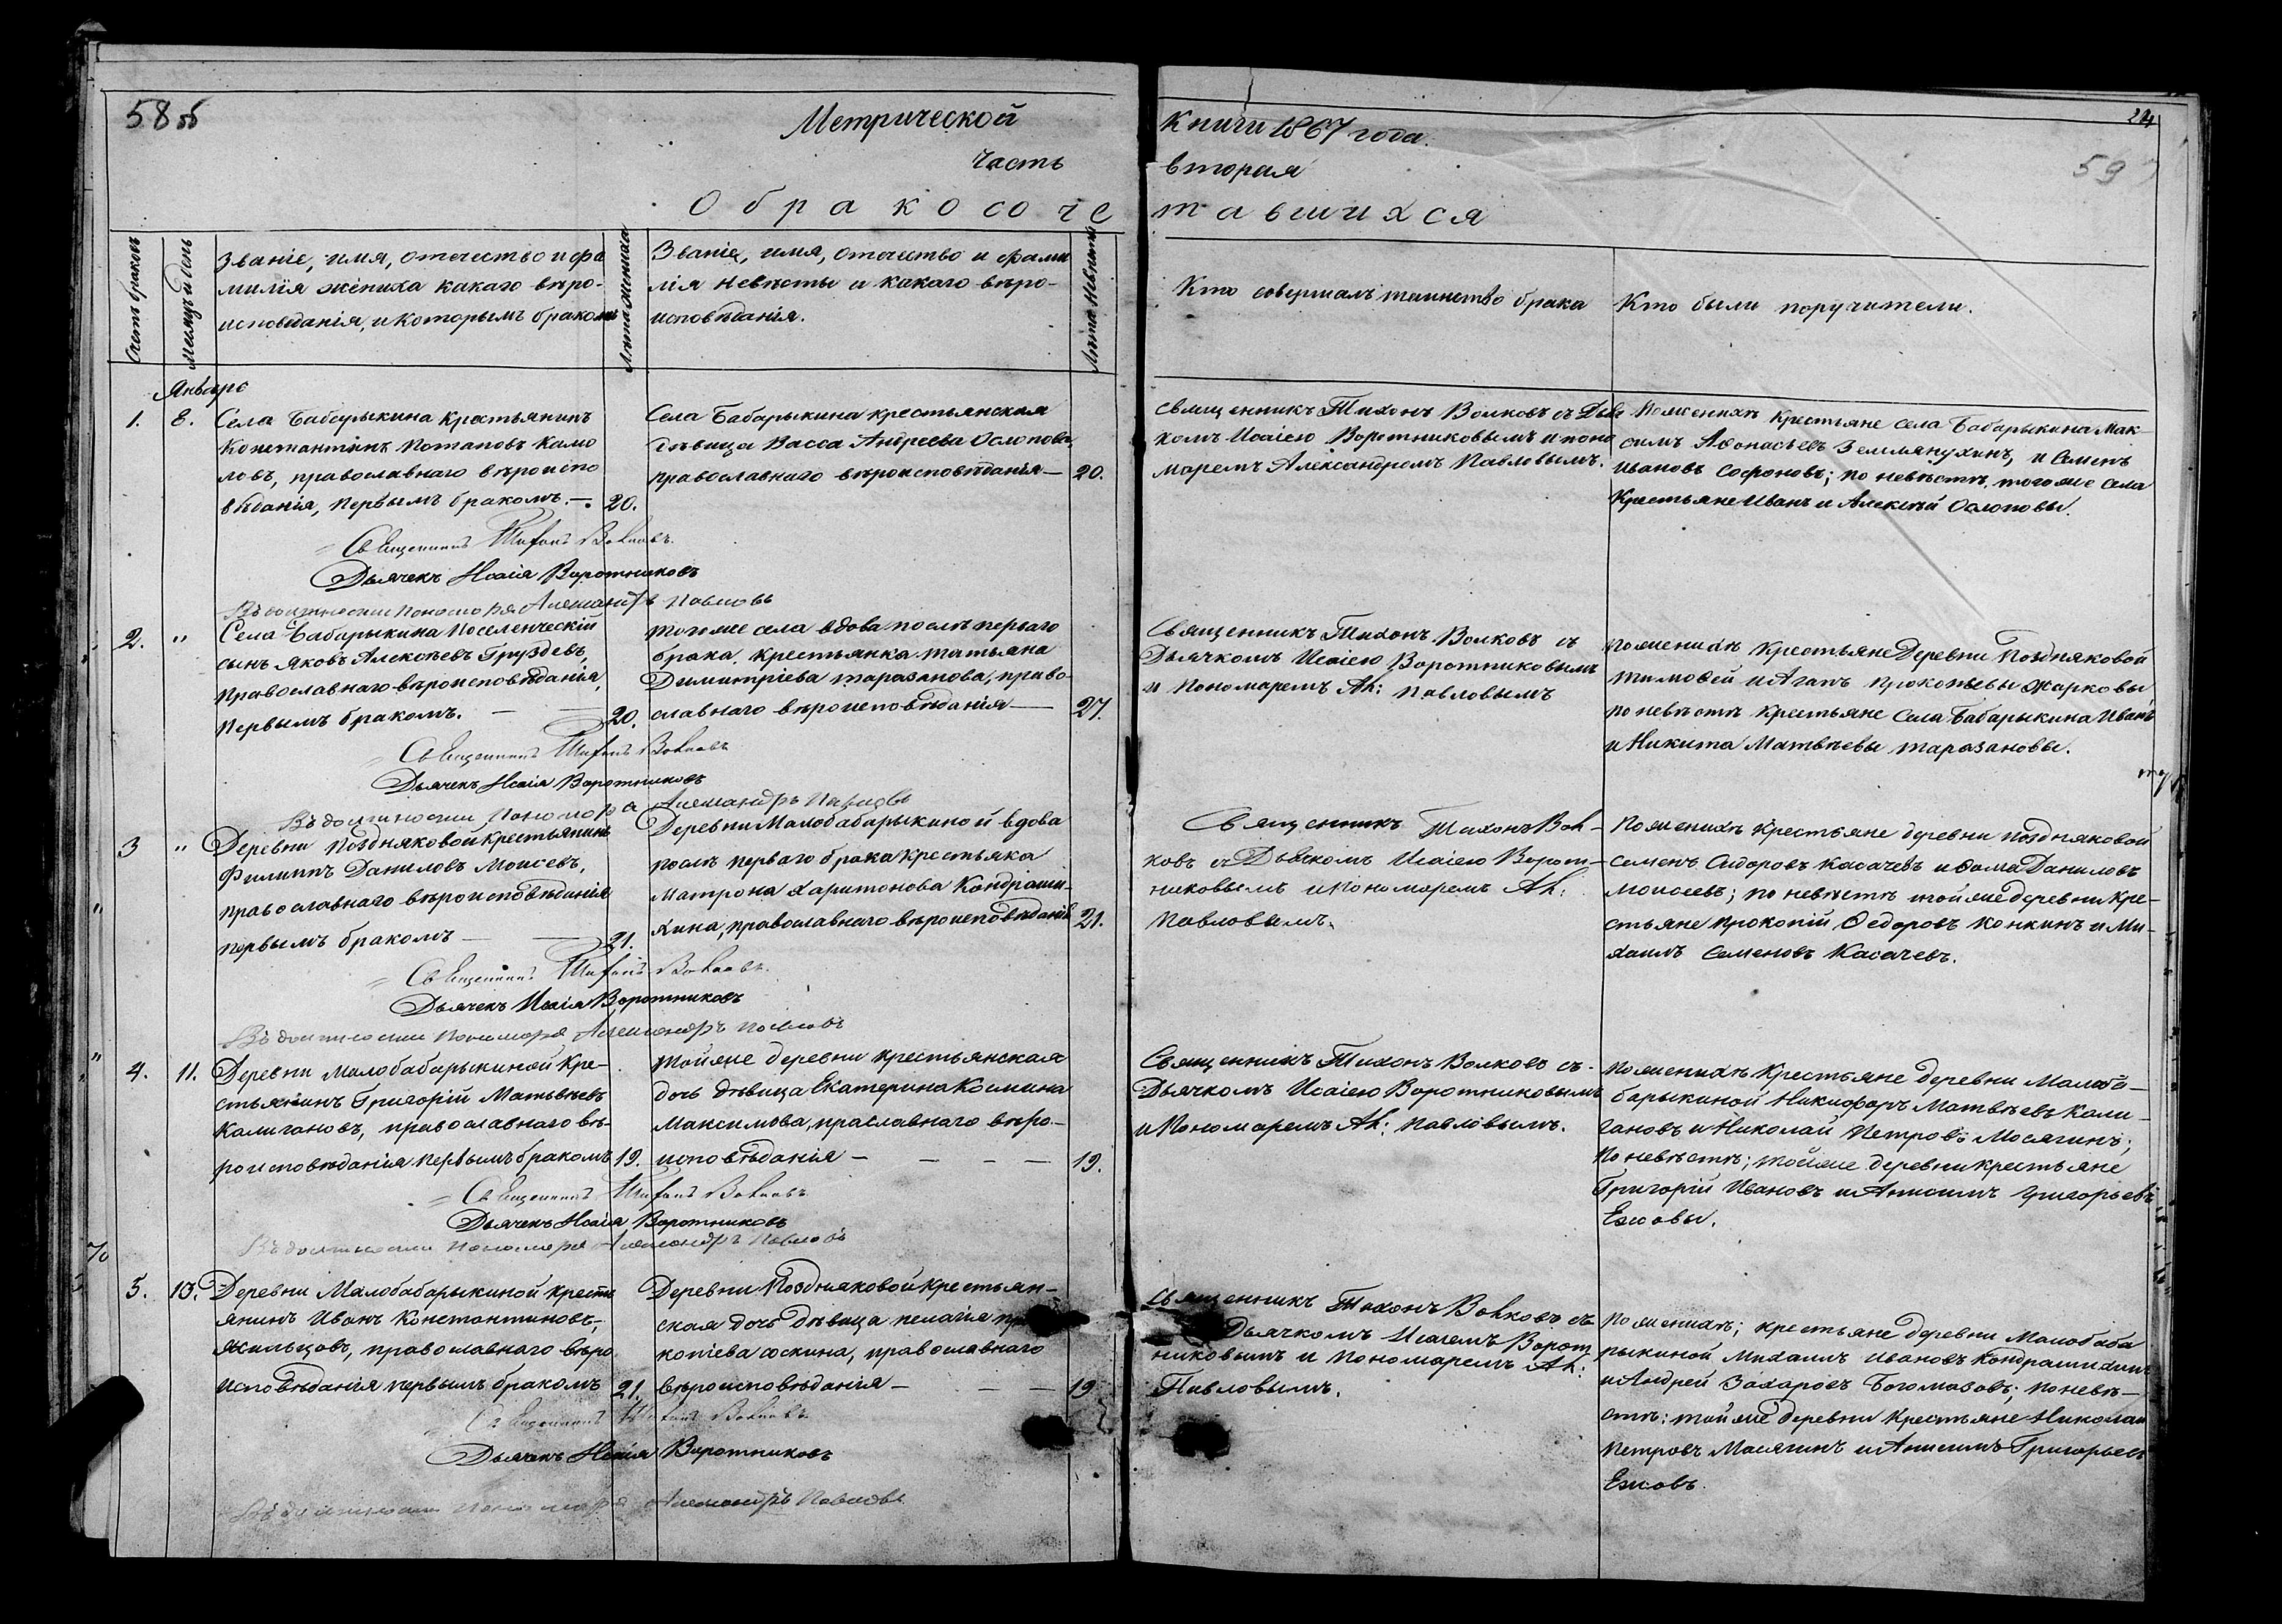 58 об
Метрической
Часть
О бракосоче
Счетъ браковъ
Месяцъ и день
Званіе, имя, отечество и фа
милія жениха какаго веро-
исповеданія, и которымъ бракомъ
Лета жениха
Званіе, имя, отечество и фами
лія невѣсты и какаго вѣро-
исповѣданія.
Лета невѣсты
Январь
1.
8.
Села Бабарыкина крестьянинъ
Константинъ Потаповъ Камо
ловъ, православнаго вѣроиспо
вѣданія, первымъ бракомъ. — 20.
Села Бабарыкина крестьянская
дѣвица Васса Андреева Ослопова,
православнаго вѣроисповѣданія — 20.
Священникъ Тихонъ Волковъ.
Дьячекъ Исаія Воротниковъ
Въ должности Пономаря Александръ Павловъ
2.
"
Села Бабарыкина Поселенческій
сынъ Яковъ Алексѣевъ Груздевъ,
православнаго вѣроисповѣданія,
первымъ бракомъ. — — 20.
Тогоже села вдова послѣ перваго
брака, крестьянка Татьяна
Димитріева Таразанова, право-
славнаго вѣроисповѣданія — 27.
Священникъ Тихонъ Волковъ
Дьячекъ Исаія Воротниковъ
Въ должности Пономаря Александръ Павловъ
3
"
Деревни Поздняковой крестьянинъ
Филиппъ Даниловъ Моисевъ,
православнаго вѣроисповѣданія
первымъ бракомъ — — 21.
Деревни Малобабарыкиной вдова
послѣ перваго брака крестьяка
Матрона Харитонова Кондраши-
хина, православнаго вѣроисповѣданія 21.
Священникъ Тихонъ Волковъ.
Дьячекъ Исаія Воротниковъ
Въ должности Пономаря Александръ Павловъ
4.
11.
Деревни Малобабарыкиной Кре-
стьянинъ Григорій Матвѣевъ
Калигановъ, православнаго вѣ-
роисповѣданія первымъ бракомъ 19.
Тойже деревни крестьянская
дочь дѣвица Екатерина Космина
Максимова, праславнаго вѣро-
исповѣданія — — — — 19.
Священникъ Тихонъ Волковъ
Дьячекъ Исаія Воротниковъ
Въ должности Пономаря Александръ Павловъ
5.
13.
Деревни Малобабарыкиной крестьи
янинъ Иванъ Константиновъ,
Жильцовъ, православнаго вѣро
исповѣданія первымъ бракомъ 21.
Деревни Поздняковой крестьян-
ская дочь дѣвица Пелагія
копіева оскина, православнаго
вѣроисповѣданія — — — 19
Священникъ Тихонъ Волковъ
Дьячекъ Исаія Воротниковъ
Въ должности Пономаря Александръ Павловъ
Книги 1867 года.
24
59
вторая
тавшихся
Кто совершалъ таинство брака
Кто были поручители.
Священникъ Тихонъ Волковъ съ Дья
комъ Исаіею Воротниковымъ и поно
маремъ Александромъ Павловымъ.
По женихѣ крестьяне села Бабарыкина Мак-
симъ Афонасьевъ Землянухинъ, и Семенъ
Ивановъ Софоновъ; по невѣстѣ, тогоже села
Крестьяне Иванъ и Алексѣй Ослоповы.
Священникъ Тихонъ Волковъ съ
Дьячкомъ Исаіею Воротниковымъ
и Пономаремъ Ал: Павловымъ
По женихѣ крестьяне Деревни Поздняковой
Тимофей и Агапъ Прокопьевы Жарковы
по невѣстѣ крестьяне Села Бабарыкина Иванъ
и Никита Матвѣевы Таразановы.
Священникъ Тихонъ Вол-
ковъ съ Дьячкомъ Исаіею Ворот-
никовымъ и Пономаремъ Ал:
Павловымъ.
По женихѣ крестьяне деревни Поздняковой
Семенъ Сидоровъ Касачевъ и Фома Даниловъ
Моисеевъ; по невѣстѣ тойже деревни Кре-
стьяне Прокопій Федоровъ Конкинъ и Ми-
хаилъ Семеновъ Касачевъ.
Священникъ Тихонъ Волковъ съ-
Дьячкомъ Исаіею Воротниковымъ
и Пономаремъ Ал: Павловымъ.
По женихѣ крестьяне деревни Малоба-
барыкиной Никифоръ Матвѣевъ Кали-
гановъ и Николай Петровъ Масягинъ;
По невѣстѣ; тойже деревни крестьяне
Григорій Ивановъ и Анисимъ Григорьевъ
Ежовы.
Священникъ Тихонъ Волковъ съ
Дьячкомъ Исаіемъ Ворот
никовымъ и Пономаремъ Ал:
Павловымъ.
По женихѣ; крестьяне деревни Малобаба
рыкиной Михаилъ Ивановъ Кондрашихинъ
и Андрей Захаровъ Богомазовъ; по невѣ-
стѣ: тойже деревни крестьяне Николай
Петровъ Масягинъ и Анисимъ Григорьевъ
Ежовъ.